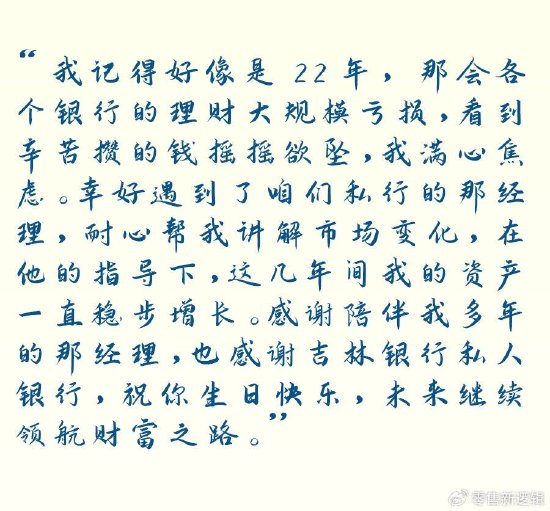 “我记得好像是22年，那会各
个银行的理财大规模亏损，看到
辛苦攒的钱摇摇欲坠，我满心焦
虑。幸好遇到了咱们私行的那经
理，耐心帮我讲解市场变化，在
他的指导下，这几年间我的资产
一直稳步增长。感谢陪伴我多年
的那经理，也感谢吉林银行私人
银行，祝你生日快乐，未来继续
领航财富之路。”
零售新逻辑